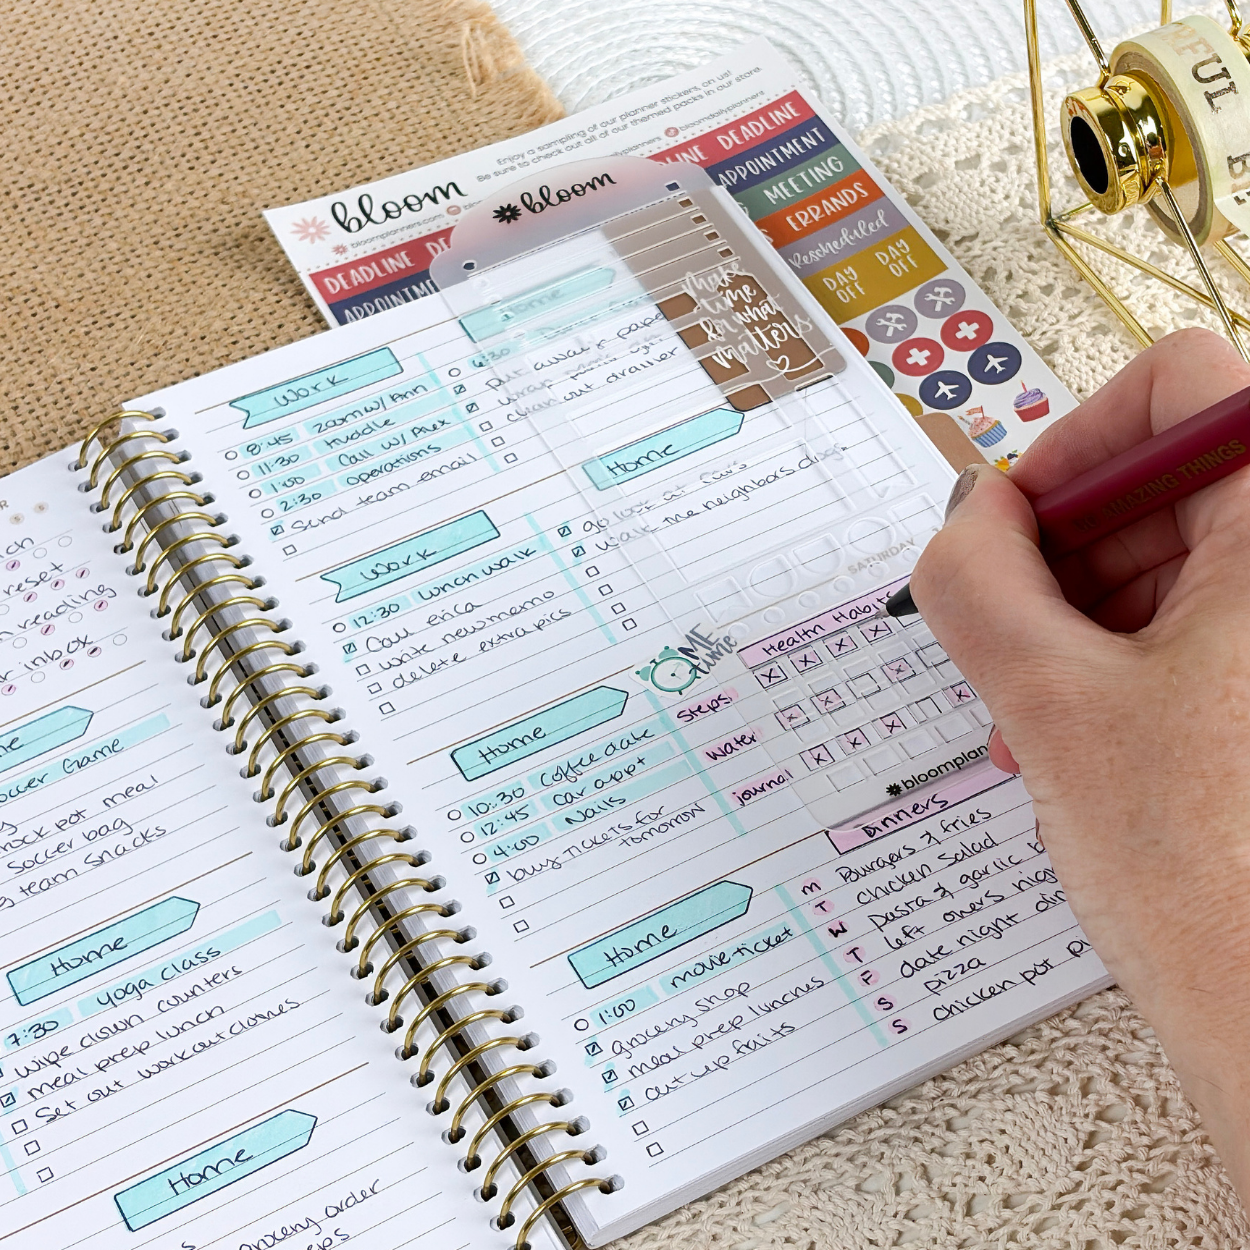 Enjoy a sampling of our planner stickers, on us!
Be sure to check out all of our themed packs in our store.
bloomdailyplanners
bloom
bloomplanners.com
bloom
DEADLINE
DEADLINE
APPOINTMENT
MEETING
ERRANDS
Rescheduled
DAY OFF
DAY OFF
DEADLINE
make
time
for what
matters
BE AMAZING THINGS
reset
reading
inbox
Soccer Game
crock pot meal
soccer bag
team snacks
Home
7:30 yoga class
wipe down counters
meal prep lunch
Set out workout clothes
Home
grocery order
Work
8:45 zoom w/ Ann
11:30 huddle
1:00 Call w/ Alex
2:30 Operations
Send team email
Work
12:30 lunch walk
Call erica
write new memo
delete extra pics
Home
10:30 Coffee date
12:45 Car appt
4:00 Nails
buy tickets for
tomorrow
Home
1:00 movie ticket
grocery shop
meal prep lunches
cut up fruits
Home
6:30
put away
clean out drawer
Home
go look at cars
walk the neighbors dogs
SATURDAY
ME
time
Health Habits
Steps
water
journal
bloomplan
Dinners
M Burgers & fries
T chicken salad
W pasta & garlic
T left overs
F date night
S pizza
S chicken pot